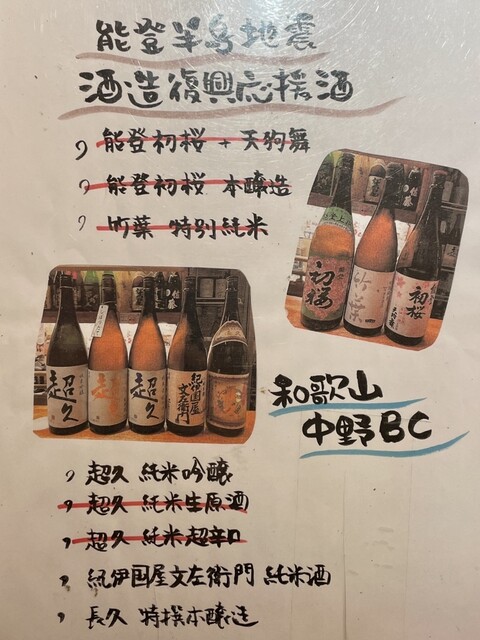 能登半島地震
酒造復興応援酒
能登初桜 + 天狗舞
能登初桜 本醸造
竹葉 特別純米
初桜
竹葉
初桜
超久
超
超久
紀伊国屋文左衛門
和歌山
中野BC
超久 純米吟醸
超久 純米生原酒
超久 純米超辛口
紀伊国屋文左衛門 純米酒
長久 特撰本醸造